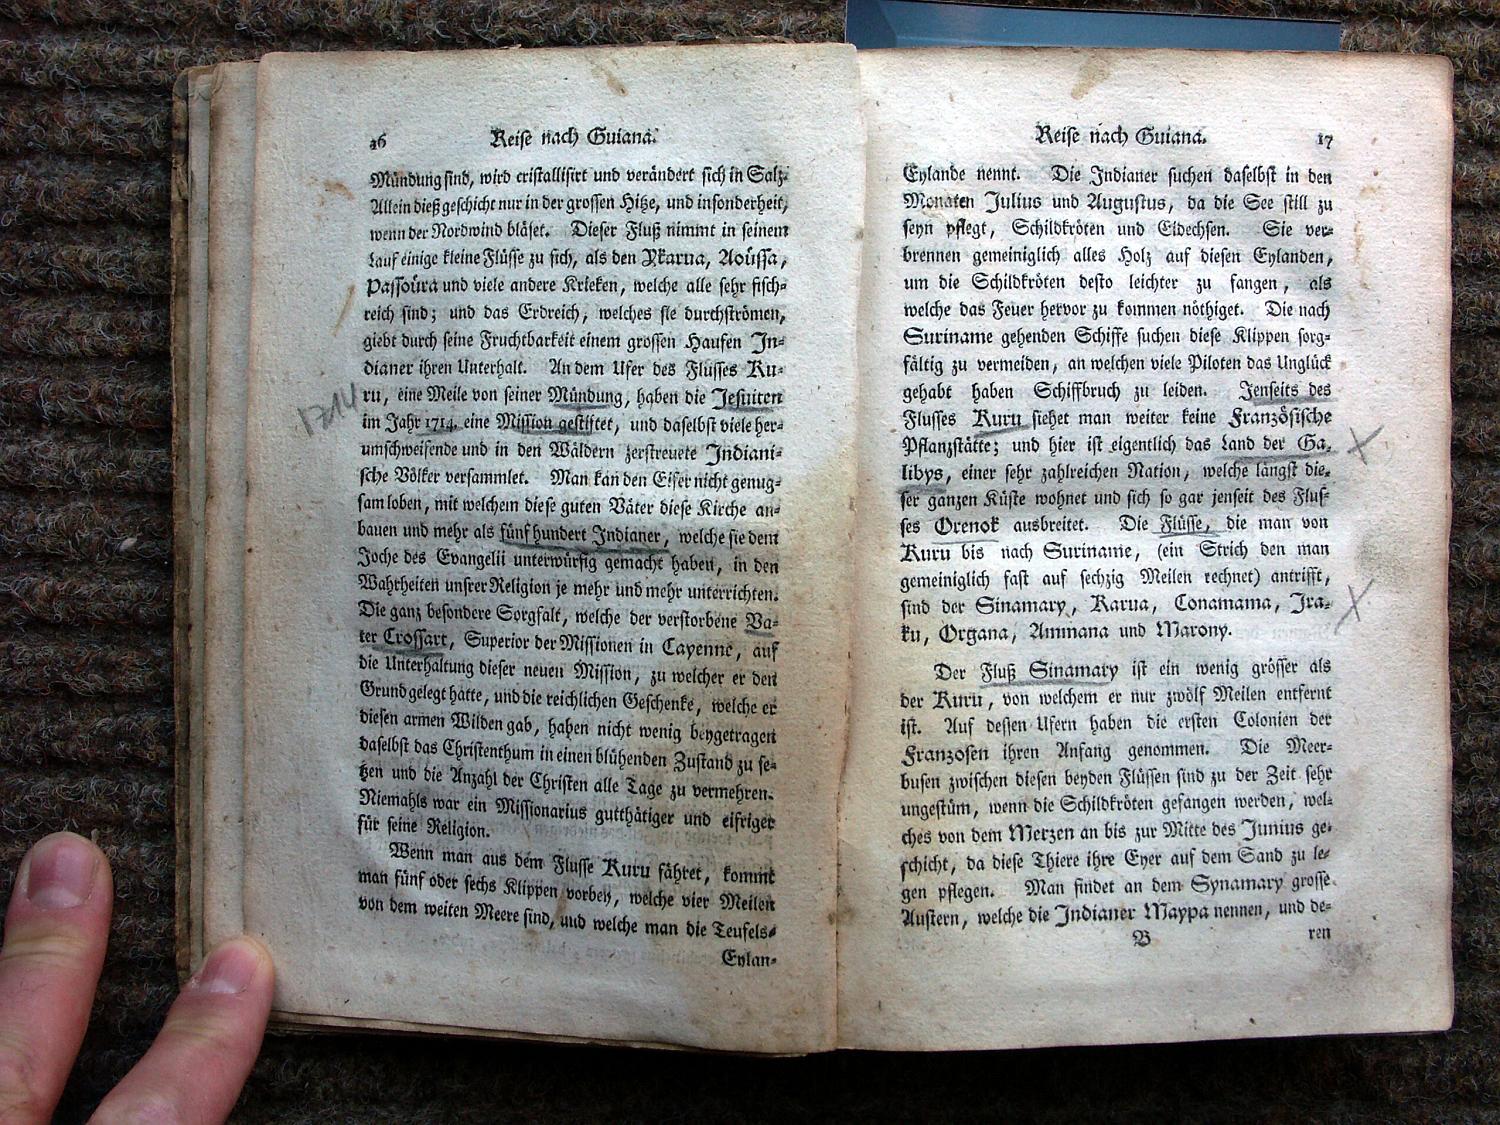 16 Reise nach Guiana.
Mündung sind, wird cristallisirt und verändert sich in Salz.
Allein dieß geschicht nur in der grossen Hitze, und insonderheit,
wenn der Nordwind bläset. Dieser Fluß nimmt in seinem
Lauf einige kleine Flüsse zu sich, als den Ykarua, Aoüssa,
Passoura und viele andere Krieken, welche alle sehr fisch-
reich sind; und das Erdreich, welches sie durchströmen,
giebt durch seine Fruchtbarkeit einem grossen Haufen In-
dianer ihren Unterhalt. An dem Ufer des Flusses Ku-
ru, eine Meile von seiner Mündung, haben die Jesuiten
1714
im Jahr 1714. eine Mission gestiftet, und daselbst viele her-
umschweifende und in den Wäldern zerstreuete Indiani-
sche Völker versammlet. Man kan den Eifer nicht genug-
sam loben, mit welchem diese guten Väter diese Kirche an-
bauen und mehr als fünf hundert Indianer, welche sie dem
Joche des Evangelii unterwürfig gemacht haben, in den
Wahrheiten unsrer Religion je mehr und mehr unterrichten.
Die ganz besondere Sorgfalt, welche der verstorbene Va-
ter Crossart, Superior der Missionen in Cayenne, auf
die Unterhaltung dieser neuen Mission, zu welcher er den
Grund gelegt hatte, und die reichlichen Geschenke, welche er
diesen armen Wilden gab, haben nicht wenig beygetragen
daselbst das Christenthum in einen blühenden Zustand zu se-
tzen und die Anzahl der Christen alle Tage zu vermehren.
Niemahls war ein Missionarius gutthätiger und eifriger
für seine Religion.
Wenn man aus dem Flusse Kuru fähret, kommt
man fünf oder sechs Klippen vorbey, welche vier Meilen
von dem weiten Meere sind, und welche man die Teufels-
Eylan-
Reise nach Guiana. 17
Eylande nennt. Die Indianer suchen daselbst in den
Monaten Julius und Augustus, da die See still zu
seyn pflegt, Schildkröten und Eidechsen. Sie ver-
brennen gemeiniglich alles Holz auf diesen Eylanden,
um die Schildkröten desto leichter zu fangen, als
welche das Feuer hervor zu kommen nöthiget. Die nach
Suriname gehenden Schiffe suchen diese Klippen sorg-
fältig zu vermeiden, an welchen viele Piloten das Unglück
gehabt haben Schiffbruch zu leiden. Jenseits des
Flusses Kuru siehet man weiter keine Französische
Pflanzstätte; und hier ist eigentlich das Land der Ga-
libys, einer sehr zahlreichen Nation, welche längst die-
ser ganzen Küste wohnet und sich so gar jenseit des Flus-
ses Orenok ausbreitet. Die Flüsse, die man von
Kuru bis nach Suriname, (ein Strich den man
gemeiniglich fast auf sechzig Meilen rechnet) antrifft,
sind der Sinamary, Karua, Conamama, Ira-
ku, Organa, Ammana und Marony.
Der Fluß Sinamary ist ein wenig grösser als
der Kuru, von welchem er nur zwölf Meilen entfernt
ist. Auf dessen Ufern haben die ersten Colonien der
Franzosen ihren Anfang genommen. Die Meer-
busen zwischen diesen beyden Flüssen sind zu der Zeit sehr
ungestüm, wenn die Schildkröten gefangen werden, wel-
ches von dem Merzen an bis zur Mitte des Junius ge-
schicht, da diese Thiere ihre Eyer auf dem Sand zu le-
gen pflegen. Man findet an dem Synamary grosse
Austern, welche die Indianer Maypa nennen, und de-
B ren